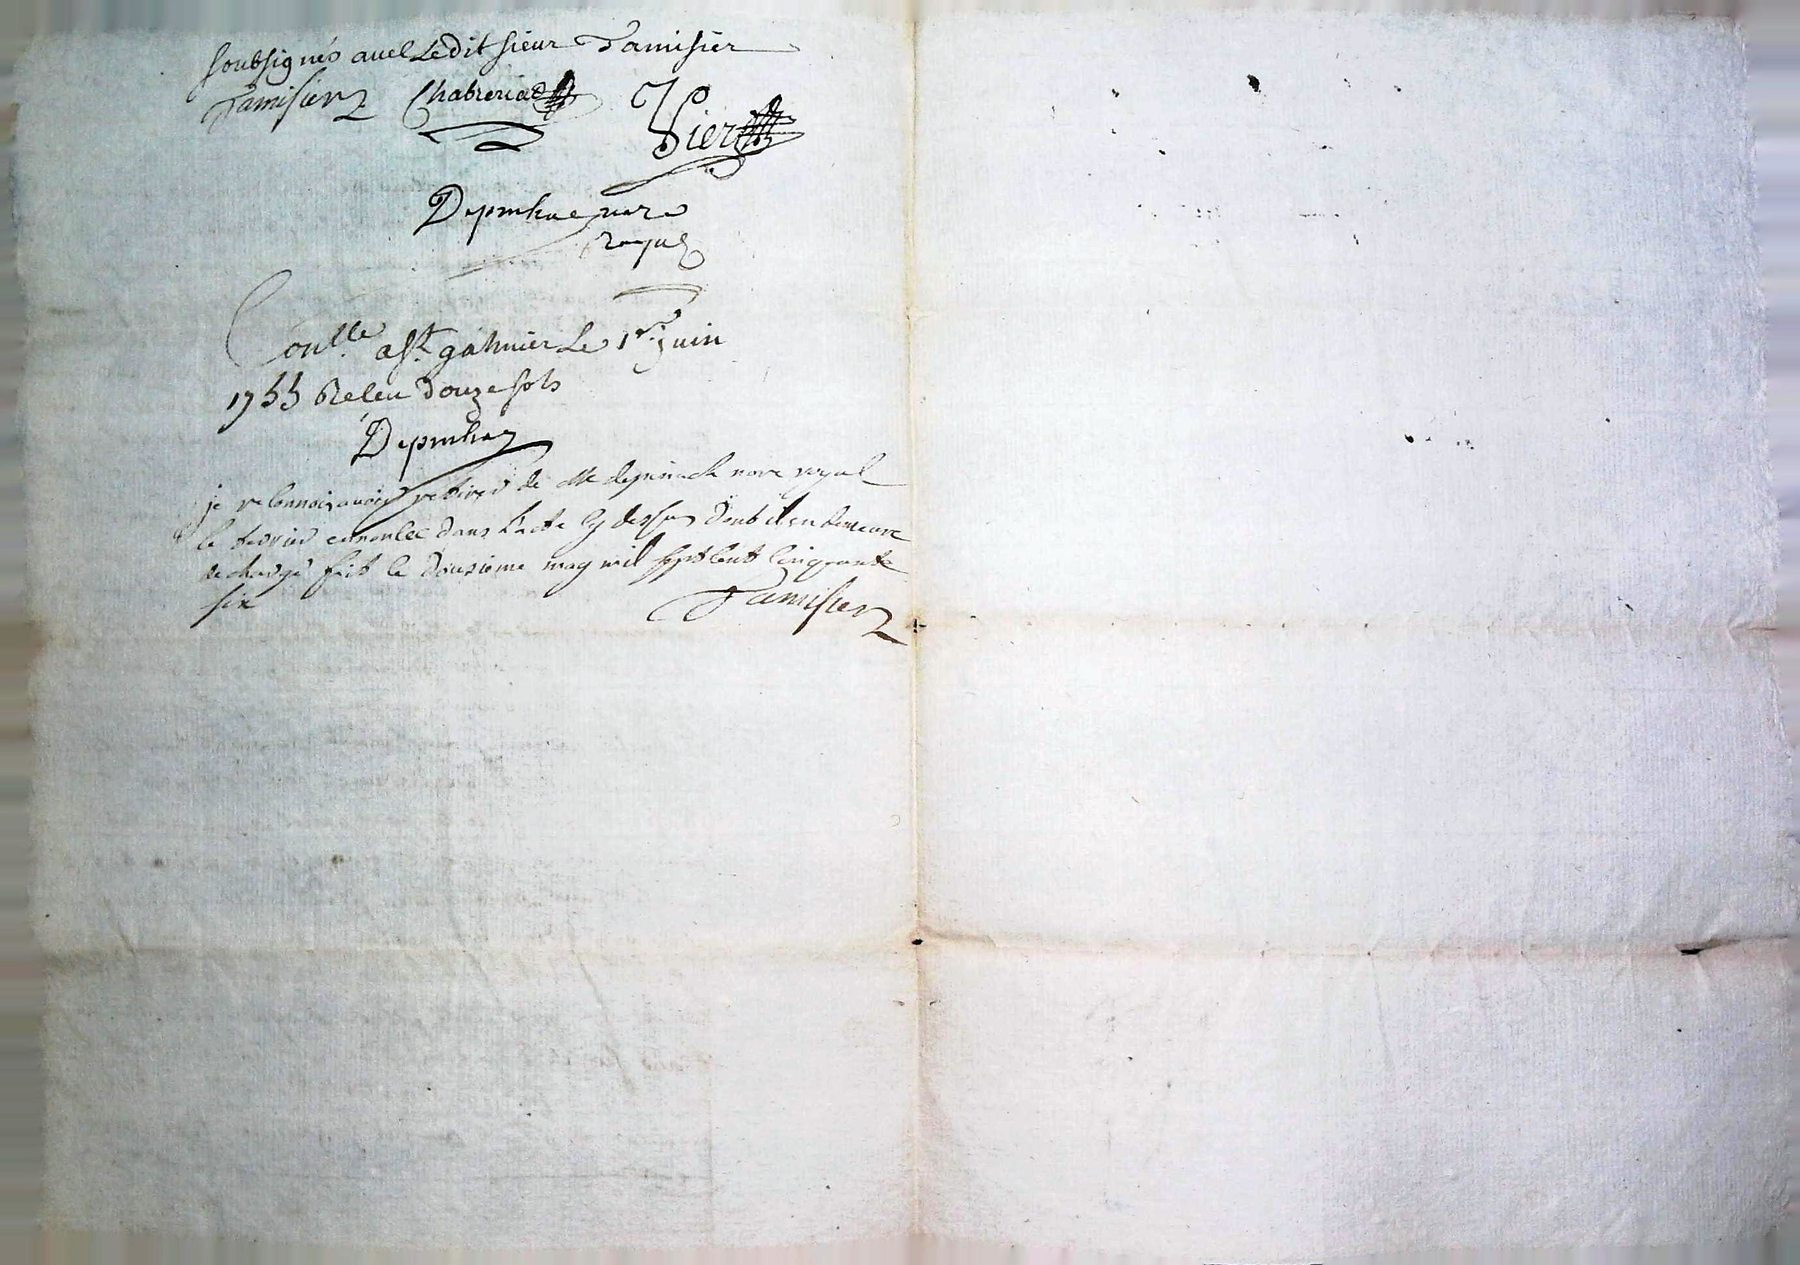 soubsignés avec Ledit sieur Tamisier
Tamisier Chabreriad
Vier
Depinhac nore
royal
Conllé a st galmier Le 1er juin
1755 Releu douze sols
Depinhac
je reconnois avoir retirer de Me depinhack nore royal
le terrier enoncée dans l'acte cy dessus dont il en demeure
decharge fait le douzieme may mil sept cent cinquante
six Tamisier